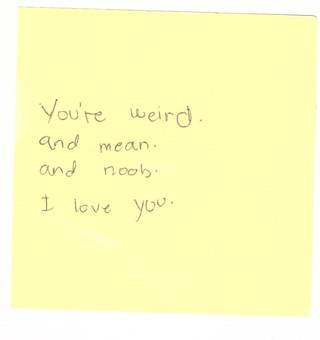 You're weird.
and mean.
and noob.
I love you.